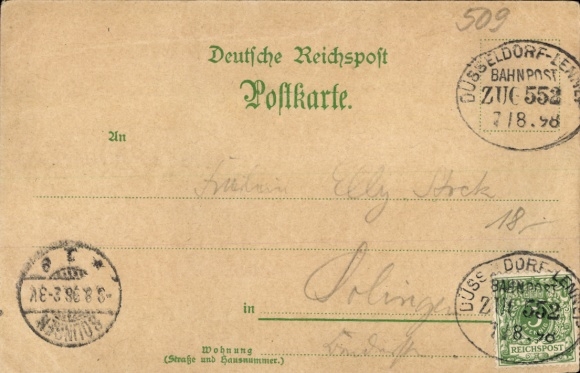 509
Deutsche Reichspost
Postkarte.
DÜSSELDORF-LENNEP
BAHNPOST
ZUG 552
7/8.98
An
Fräulein Elly Stock
18.-
Solingen
SOLINGEN
in
DÜSSELDORF-LENNEP
BAHNPOST
ZUG 552
7/8.98
5
REICHSPOST
Wohnung
(Straße und Hausnummer.)